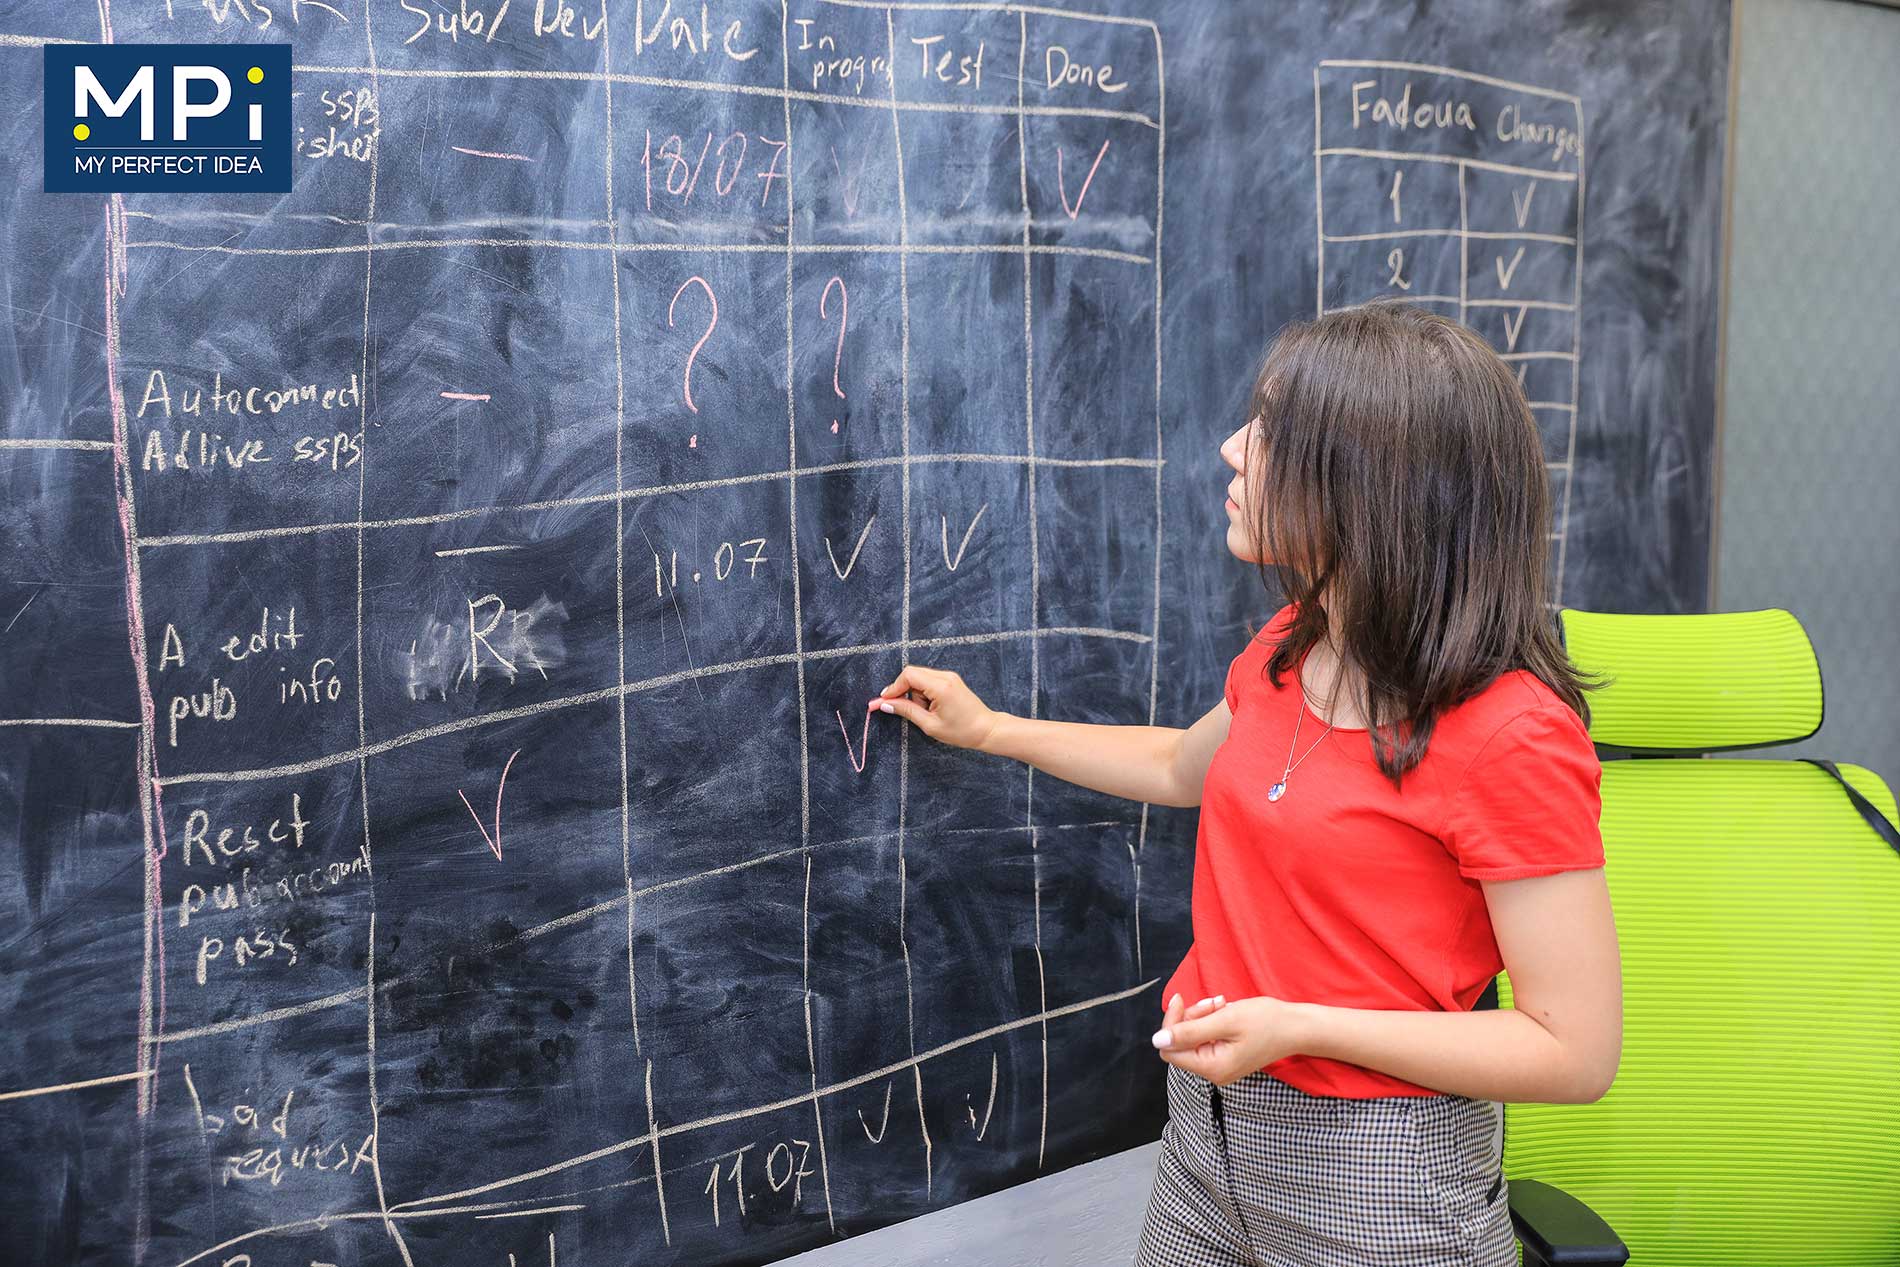 MPi
MY PERFECT IDEA
Task Sub/Dev Date In progres Test Done
ssps
isher — 18/07 V V
? ?
Autoconnect —
Adlive ssps
— 11.07 V V
A edit R
pub info
V V
Reset
pub account
pass
bad
request
11.07 V V
Fadoua Changes
1 V
2 V
V